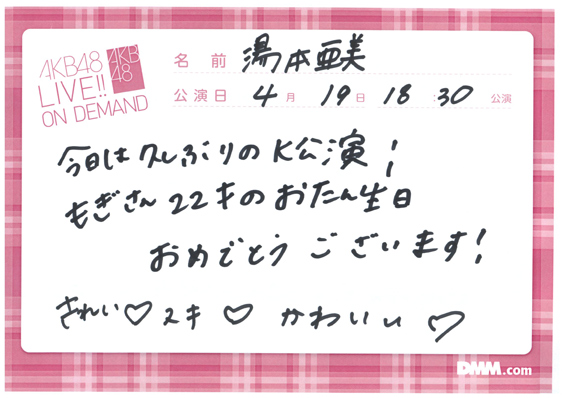 AKB48
LIVE!!
ON DEMAND
AKB
48
名前 湯本亜美
公演日 4月 19日 18:30 公演
今日は久しぶりのK公演!
もぎさん22才のおたん生日
おめでとうございます!
きれい♡スキ♡かわいい♡
DMM.com